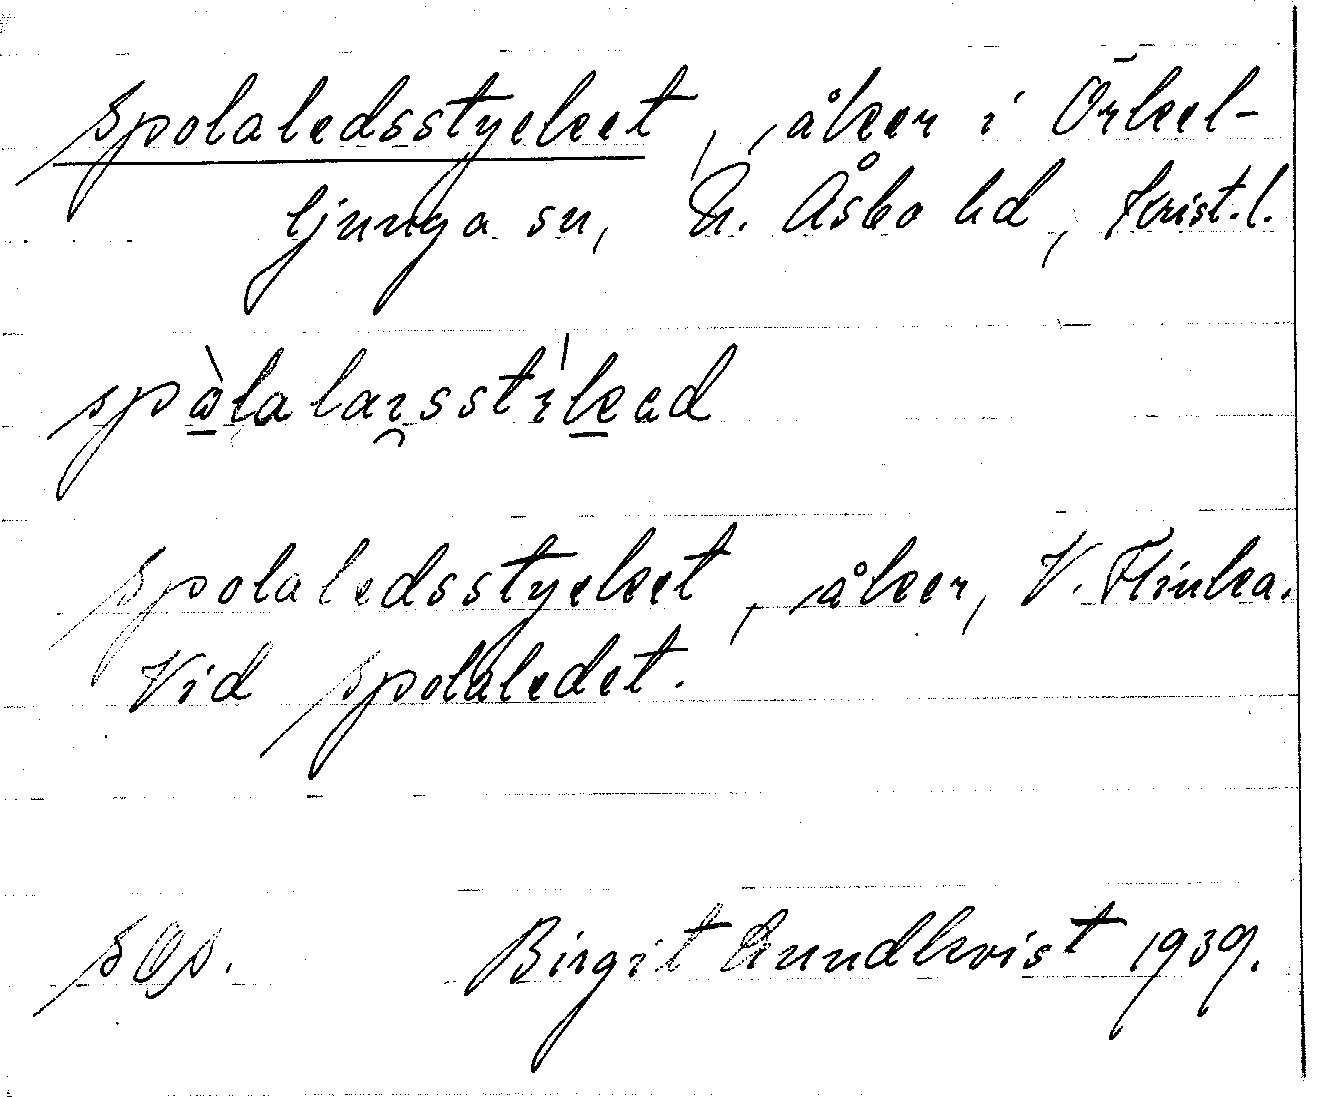 Spolaledsstycket, åker i Örkel-
ljunga sn, N. Åsbo hd, Krist.l.
Spolaledsstycket, åker, V. Flinka.
Vid Spolaledet.
Birgit Lundkvist 1939.